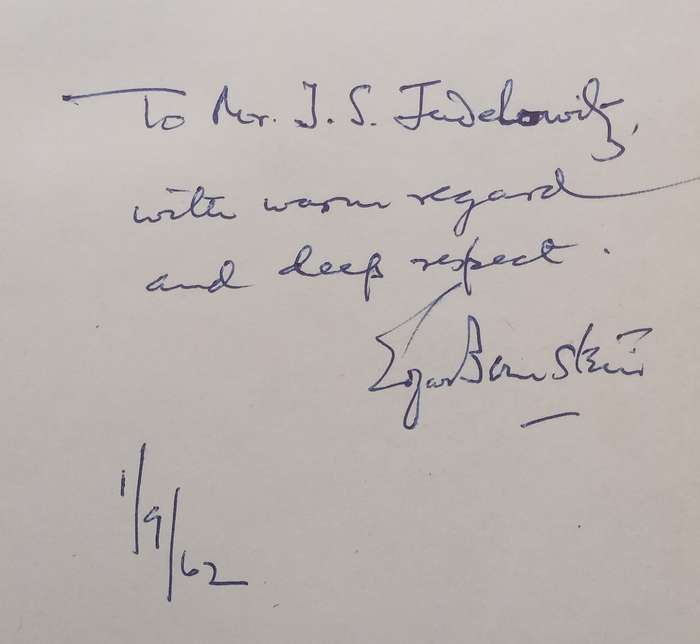 To Mr. I. S. Judelowitz,
with warm regard
and deep respect.
Edgar Bernstein
1/9/62